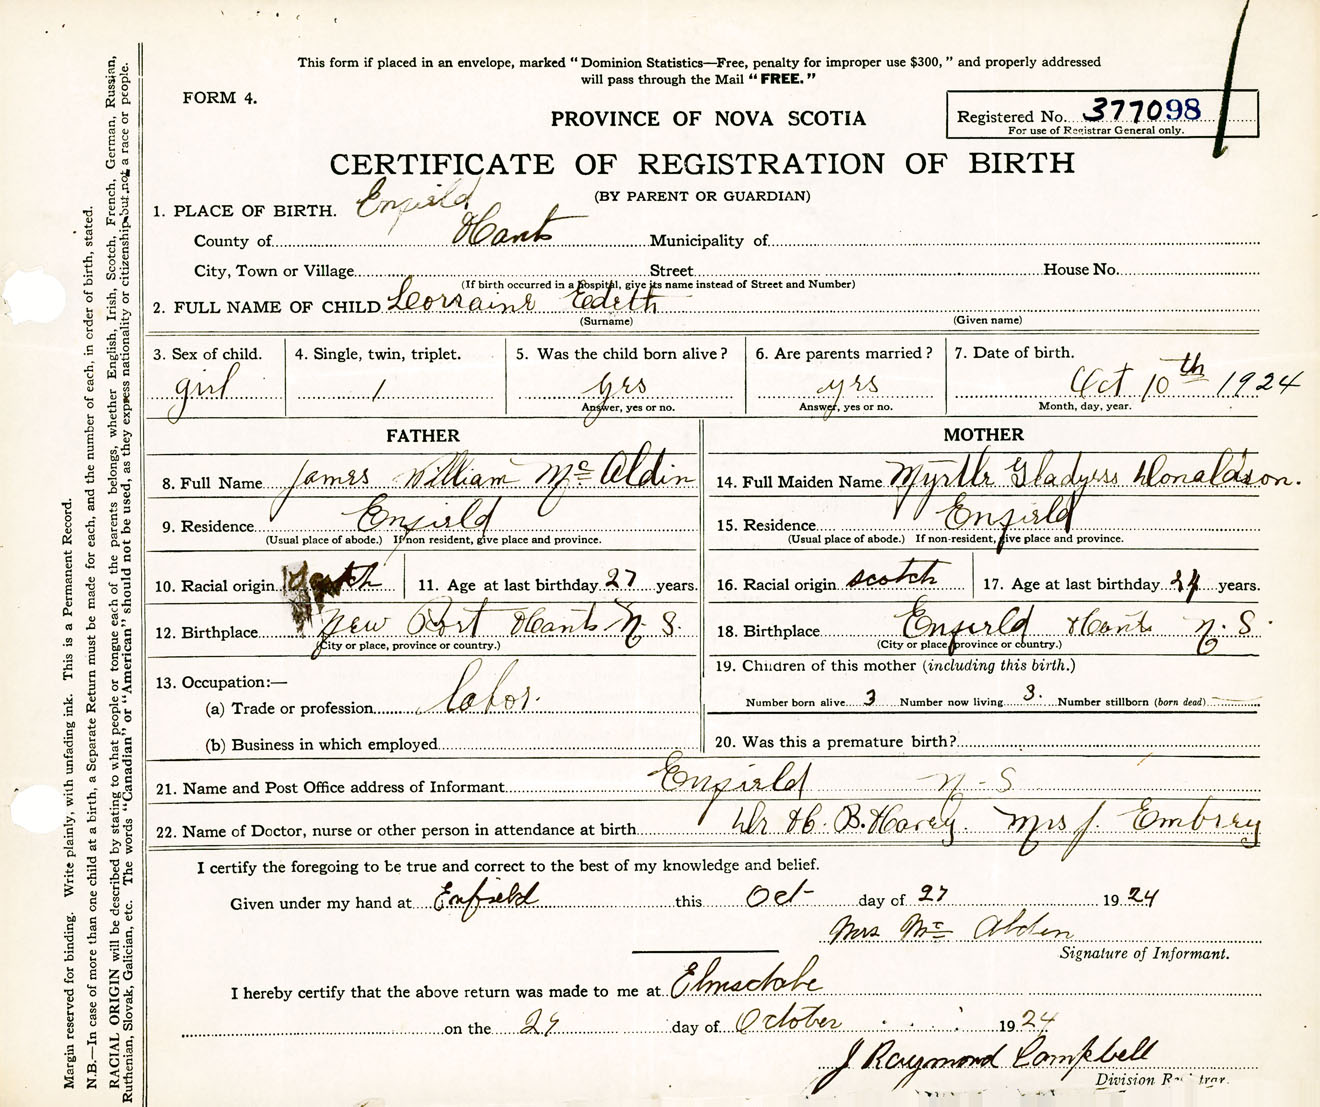 This form if placed in an envelope, marked “Dominion Statistics—Free, penalty for improper use $300,” and properly addressed
will pass through the Mail “FREE.”
FORM 4.
PROVINCE OF NOVA SCOTIA
Registered No. 377098
For use of Registrar General only.
CERTIFICATE OF REGISTRATION OF BIRTH
(BY PARENT OR GUARDIAN)
1. PLACE OF BIRTH. Enfield
County of Hants Municipality of
City, Town or Village Street House No.
(If birth occurred in a hospital, give its name instead of Street and Number)
2. FULL NAME OF CHILD Lorraine Edeth
(Surname) (Given name)
3. Sex of child. 4. Single, twin, triplet. 5. Was the child born alive? 6. Are parents married? 7. Date of birth.
girl 1 yes yes Oct 10th 1924
Answer, yes or no. Answer, yes or no. Month, day, year.
FATHER MOTHER
8. Full Name James William Mc Aldin 14. Full Maiden Name Myrtle Gladyess Donaldson.
9. Residence Enfield 15. Residence Enfield
(Usual place of abode.) If non resident, give place and province. (Usual place of abode.) If non-resident, give place and province.
10. Racial origin 11. Age at last birthday 27 years. 16. Racial origin scotch 17. Age at last birthday 24 years.
12. Birthplace New Port Hants N. S. 18. Birthplace Enfield Hants N. S.
(City or place, province or country.) (City or place, province or country.)
13. Occupation:— 19. Children of this mother (including this birth.)
(a) Trade or profession labor. Number born alive 3 Number now living 3. Number stillborn (born dead)
(b) Business in which employed 20. Was this a premature birth?
21. Name and Post Office address of Informant Enfield N-S
22. Name of Doctor, nurse or other person in attendance at birth Dr H. B. Havey. Mrs J. Embrey
I certify the foregoing to be true and correct to the best of my knowledge and belief.
Given under my hand at Enfield this Oct day of 27 1924
Mrs Mc Alden
Signature of Informant.
I hereby certify that the above return was made to me at Elmsdale
on the 29 day of October 1924
J Raymond Campbell
Division Registrar.
Margin reserved for binding. Write plainly, with unfading ink. This is a Permanent Record.
N.B.—In case of more than one child at a birth, a Separate Return must be made for each, and the number of each, in order of birth, stated.
RACIAL ORIGIN will be described by stating to what people or tongue each of the parents belongs, whether English, Irish, Scotch, French, German, Russian,
Ruthenian, Slovak, Galician, etc. The words “Canadian” or “American” should not be used, as they express nationality or citizenship but not a race or people.